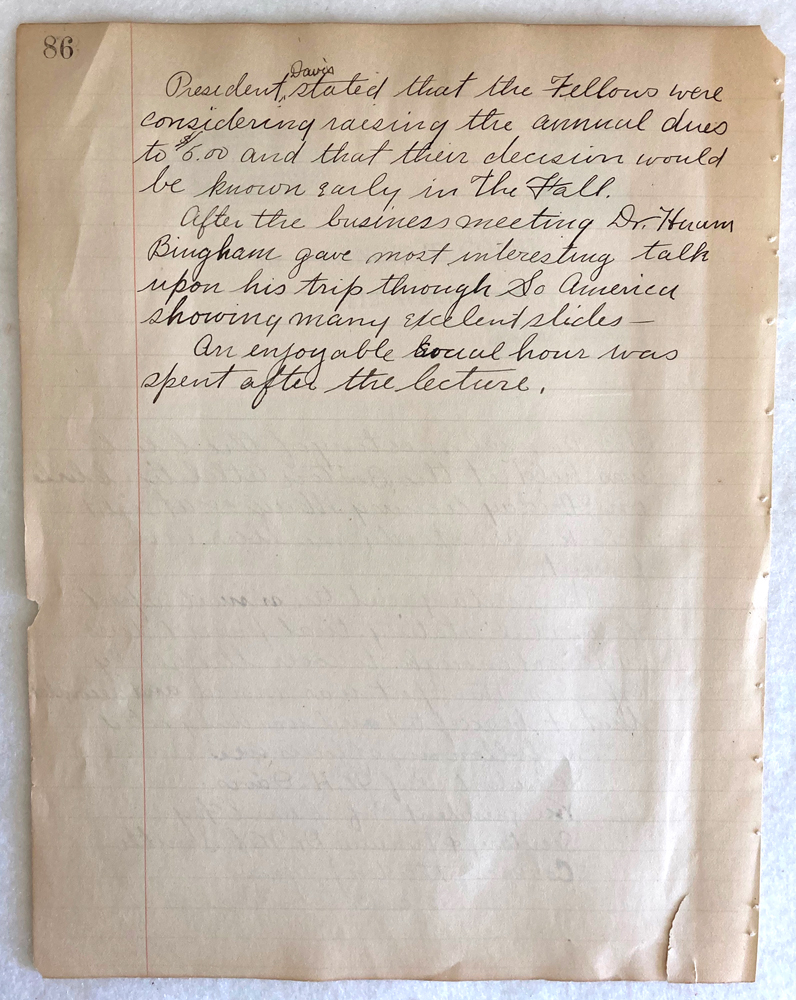 86
President, Davis stated that the Fellows were
considering raising the annual dues
to $6.00 and that their decision would
be known early in the Fall.
After the business meeting Dr. Hiram
Bingham gave most interesting talk
upon his trip through So America
showing many excelent slides —
An enjoyable social hour was
spent after the lecture.